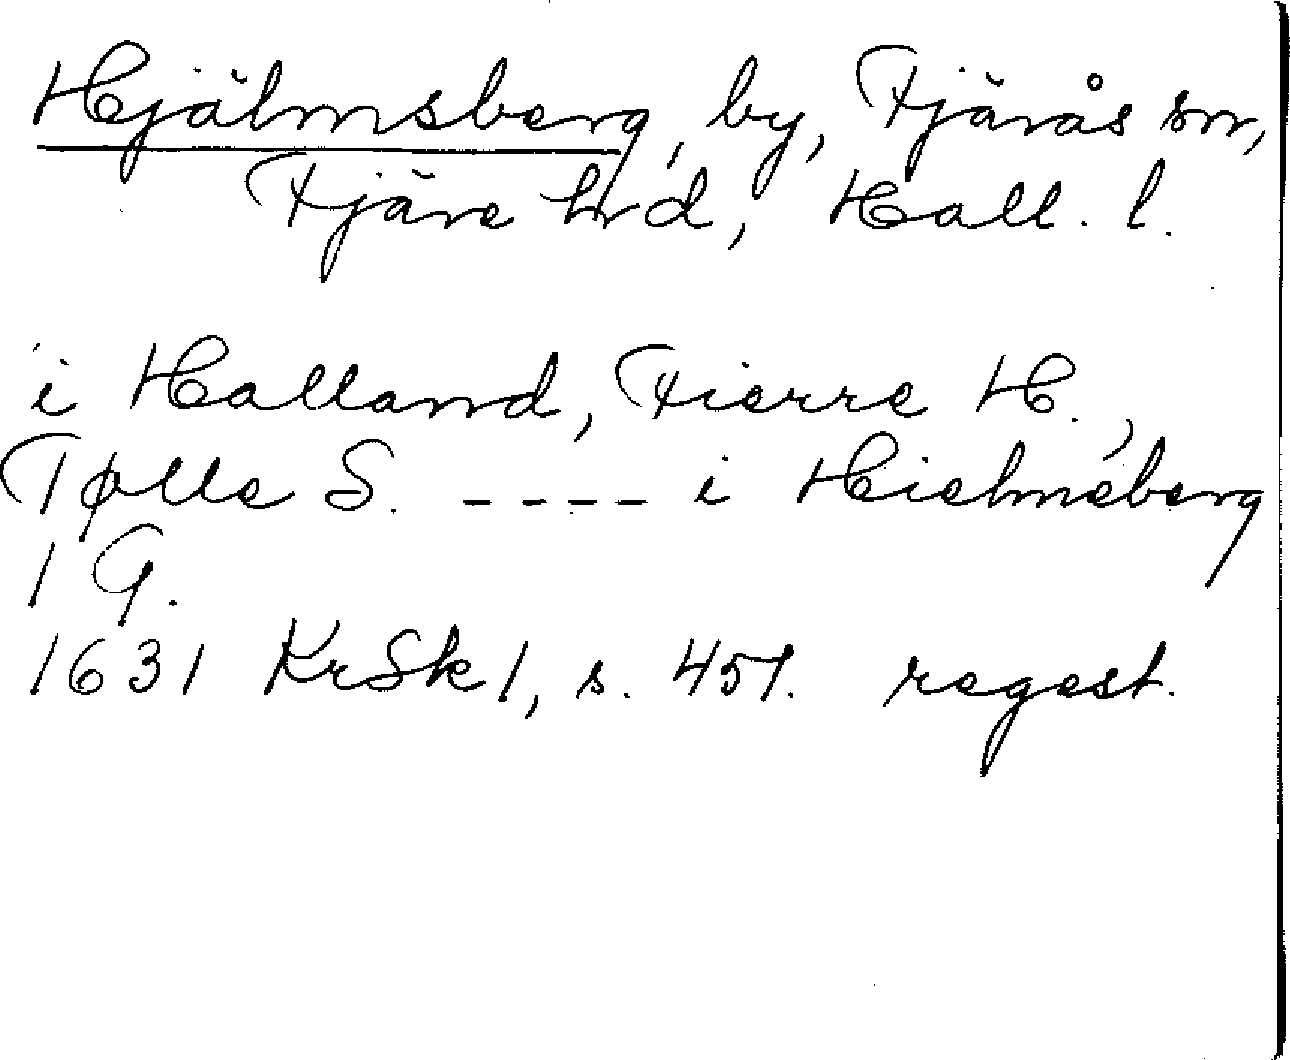 Hjälmsberg, by, Fjärås sn,
Fjäre hd, Hall. l.
i Halland, Fierre H.,
Tølle S. ---- i Hielmeberg
1 G.
1631 KrSk 1, s. 451. regest.